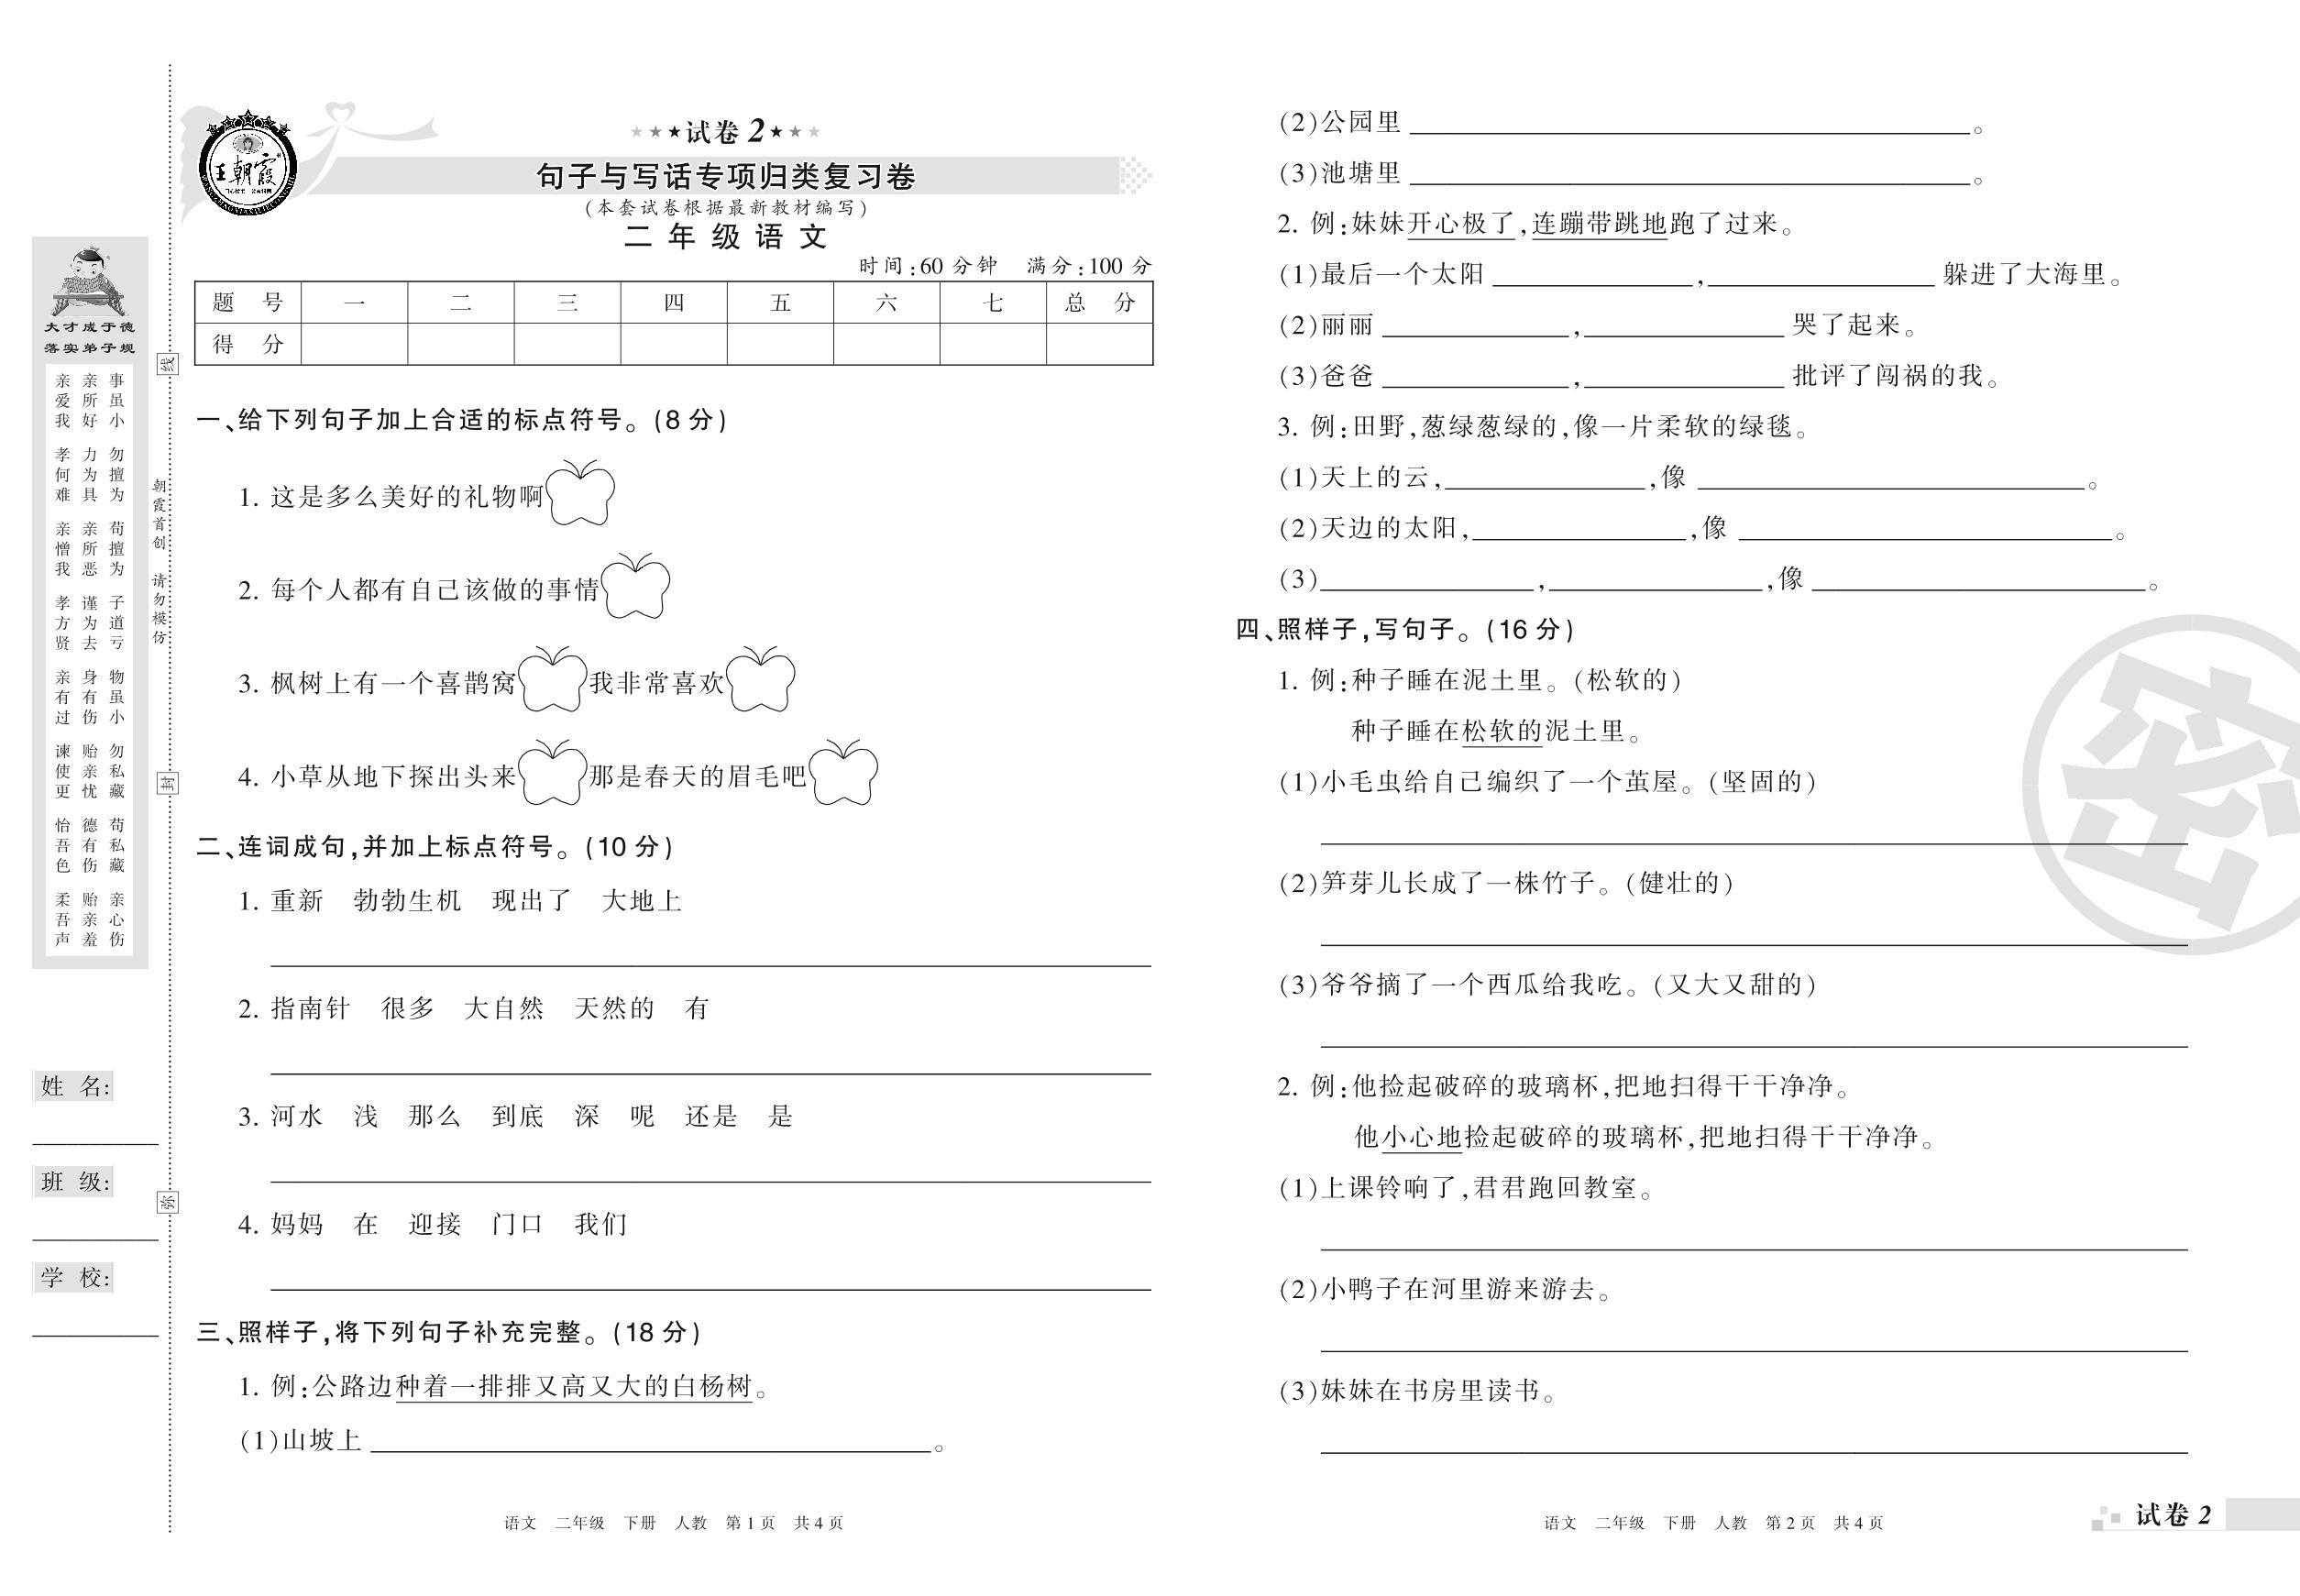 ★★★试卷2★★★
王朝霞
句子与写话专项归类复习卷
(本套试卷根据最新教材编写)
二年级语文
时间:60分钟 满分:100分
题 号 一 二 三 四 五 六 七 总 分
得 分
大才成于德
落实弟子规
亲爱我 孝何难 亲憎我 孝方贤 亲有过 谏使更 怡吾色 柔吾声
亲所好 力为具 亲所恶 谨为去 身有伤 贻亲忧 德有伤 贻亲羞
事虽小 勿擅为 苟擅为 子道亏 物虽小 勿私藏 苟私藏 亲心伤
朝霞首创 请勿模仿
线
封
弥
姓 名:
班 级:
学 校:
一、给下列句子加上合适的标点符号。(8分)
1. 这是多么美好的礼物啊
2. 每个人都有自己该做的事情
3. 枫树上有一个喜鹊窝 我非常喜欢
4. 小草从地下探出头来 那是春天的眉毛吧
二、连词成句,并加上标点符号。(10分)
1. 重新 勃勃生机 现出了 大地上
2. 指南针 很多 大自然 天然的 有
3. 河水 浅 那么 到底 深 呢 还是 是
4. 妈妈 在 迎接 门口 我们
三、照样子,将下列句子补充完整。(18分)
1. 例:公路边种着一排排又高又大的白杨树。
(1)山坡上 。
语文 二年级 下册 人教 第1页 共4页
(2)公园里 。
(3)池塘里 。
2. 例:妹妹开心极了,连蹦带跳地跑了过来。
(1)最后一个太阳 , 躲进了大海里。
(2)丽丽 , 哭了起来。
(3)爸爸 , 批评了闯祸的我。
3. 例:田野,葱绿葱绿的,像一片柔软的绿毯。
(1)天上的云, ,像 。
(2)天边的太阳, ,像 。
(3) , ,像 。
四、照样子,写句子。(16分)
1. 例:种子睡在泥土里。(松软的)
种子睡在松软的泥土里。
(1)小毛虫给自己编织了一个茧屋。(坚固的)
(2)笋芽儿长成了一株竹子。(健壮的)
(3)爷爷摘了一个西瓜给我吃。(又大又甜的)
2. 例:他捡起破碎的玻璃杯,把地扫得干干净净。
他小心地捡起破碎的玻璃杯,把地扫得干干净净。
(1)上课铃响了,君君跑回教室。
(2)小鸭子在河里游来游去。
(3)妹妹在书房里读书。
密
语文 二年级 下册 人教 第2页 共4页
试卷2